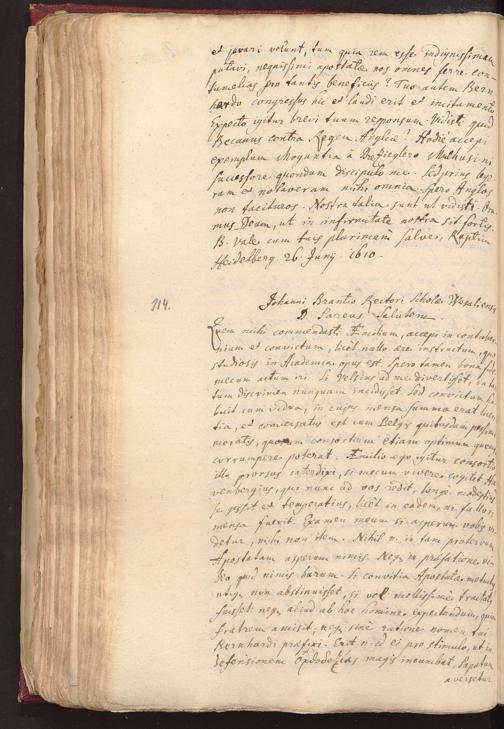 et javari volunt, tum quia rem esse indignissimam
putavi, nequissimi apostatæ nos omnes ferre con-
tumelias pro tantis beneficiis? Tuo autem Bern
hardo congressus hic et laudi erit et incitamento
Expecto igitur brevi tuum responsum. Vidisti quid
Becanus contra Regem Angliæ? Hodie accepi
exemplum Moguntia à Zieglero
successore quondam discipulo meo. Sed prius
ram et notaveram mihi omnia. Spero Anglos
non tacituros. Nostra talia sunt ut vidisti. Ore
mus Deum, ut in infirmitate nostra sit fortis.
B. Vale cum tuis plurimum salve. Raptim
Heidelberg. 26 Junij. 1610.
114.
Johanni Brantio Rectori Scholæ Wesaliensis
D. Pareus Salutem.
Quem mihi commendasti Æmilium, accepi in contuber-
nium et convictum, licet nullo ære instructum, quo
studiosis in Academia opus est. Spero tamen bona fide
mecum actum iri. Si Velsius ad me divertisset, in
tum discrimen nunquam incidisset. Sed convictum ha
buit cum vidua, in cujus mensa summa erat
tia, et conversatus est cum Belgis quibusdam pessime
moratis, quorum consortium etiam optimum quemque
corrumpere poterat. Æmilio ego igitur consortio
illo prorsus interdixi, si mecum vivere cogitet. Ho
venbergius, qui nunc ad vos redit, longe modestius
se gessit et temperatius, licet in eadem, ni fallor,
mensa fuerit. Examen meum si asperum vobis vi-
detur, mihi non item. Nihil n. in tam protervum
Apostatam asperum nimis. Neq. in præfatione vi-
deo quid nimis durum. Si convitia Apostatæ
non abstinuisset, si vel mollissime tractatus
fuisset neq. aliud ab hoc homine expectandum, quia
fratrem amisit, neq. sine ratione nomen tui
Bernhardi præfixi. Erit n. id ei pro stimulo, ut in
defensionem ὀρθοδοξίας magis incumbat, Papatum
aversetur